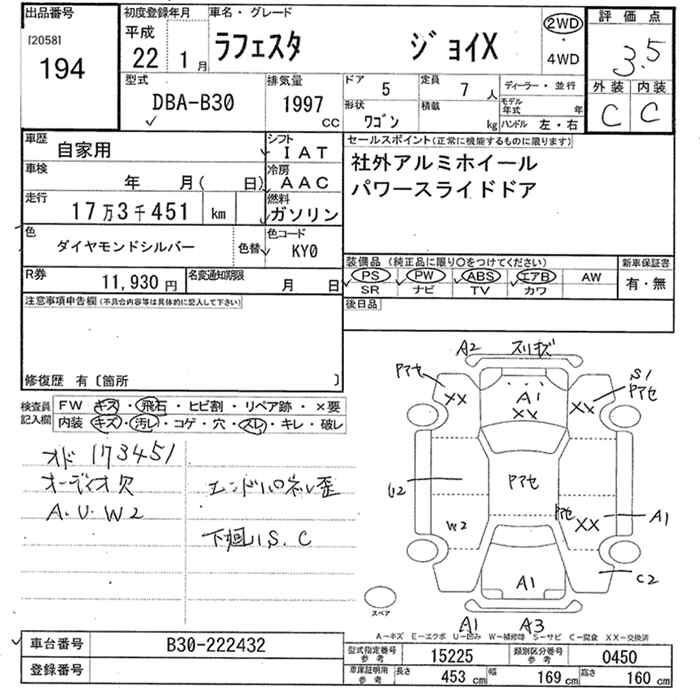 出品番号
[2058]
194
初度登録年月
平成
22 1月
車名・グレード
ラフェスタ ジョイX
2WD
・
4WD
評価点
3.5
外装 内装
C C
型式
DBA-B30
排気量
1997
cc
ドア 5
形状 ワゴン
定員 7 人
積載 kg
ディーラー・並行
モデル年式 年
ハンドル 左・右
車歴
自家用
シフト
IAT
車検
年 月( 日)
冷房
AAC
走行
17万3千451 km
燃料
ガソリン
色
ダイヤモンドシルバー
色替
色コード
KY0
R券
11,930 円
名変通知期限
月 日
セールスポイント(正常に機能するものに限ります)
社外アルミホイール
パワースライドドア
装備品 (純正品に限り○をつけてください)
PS PW ABS エアB AW
SR ナビ TV カワ
新車保証書
有・無
後日品
注意事項申告欄(不具合内容等は具体的に記入して下さい)
修復歴 有〔箇所 〕
検査員
記入欄
FW キズ・飛石・ヒビ割・リペア跡・×要
内装 キズ・汚レ・コゲ・穴・スレ・キレ・破レ
オド 173451
オーディオ欠
A.U.W2
エンドパネル歪
下廻りS.C
A2 スリキズ
PアセXX
A1
XX
S1
Pアセ
XX
U2
Pアセ
W2
Pアセ
XX
A1
A1
C2
A1 A3
スペア
A−キズ E−エクボ U−凹み W−補修跡 S−サビ C−腐食 XX−交換済
車台番号
B30-222432
登録番号
型式指定番号
参考
15225
類別区分番号
参考
0450
車庫証明用
参考
長さ 453 cm
幅 169 cm
高さ 160 cm